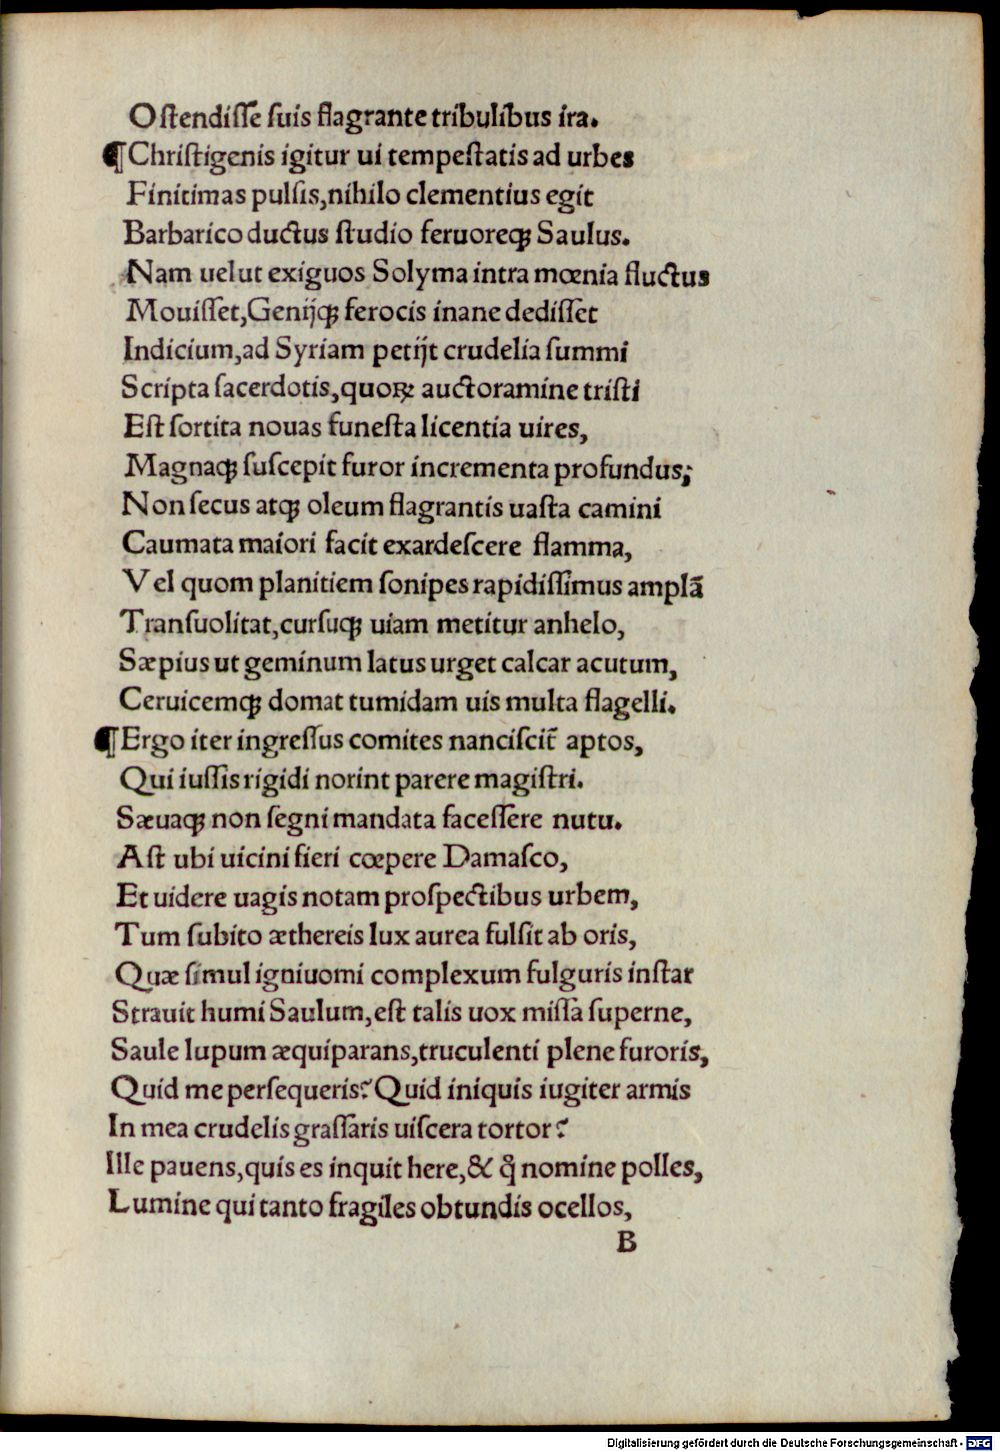 Oſtendiſſe ſuis flagrante tribulibus ira.
¶Chriſtigenis igitur ui tempeſtatis ad urbes
Finitimas pulſis,nihilo clementius egit
Barbarico ductus ſtudio feruoreqꝫ Saulus.
Nam uelut exiguos Solyma intra mœnia fluctus
Mouiſſet,Genijqꝫ ferocis inane dediſſet
Indicium,ad Syriam petijt crudelia ſummi
Scripta ſacerdotis,quoꝝ auctoramine triſti
Eſt ſortita nouas funeſta licentia uires,
Magnaqꝫ ſuſcepit furor incrementa profundus;
Non ſecus atqꝫ oleum flagrantis uaſta camini
Caumata maiori facit exardeſcere flamma,
Vel quom planitiem ſonipes rapidiſſimus amplā
Tranſuolitat,curſuqꝫ uiam metitur anhelo,
Sæpius ut geminum latus urget calcar acutum,
Ceruicemqꝫ domat tumidam uis multa flagelli.
¶Ergo iter ingreſſus comites nanciſcit̃ aptos,
Qui iuſſis rigidi norint parere magiſtri.
Sæuaqꝫ non ſegni mandata faceſſere nutu.
Aſt ubi uicini fieri cœpere Damaſco,
Et uidere uagis notam proſpectibus urbem,
Tum ſubito æthereis lux aurea fulſit ab oris,
Quæ ſimul igniuomi complexum fulguris inſtar
Strauit humi Saulum,eſt talis uox miſſa ſuperne,
Saule lupum æquiparans,truculenti plene furoris,
Quid me perſequeris?Quid iniquis iugiter armis
In mea crudelis graſſaris uiſcera tortor?
Ille pauens,quis es inquit here,& qͦ nomine polles,
Lumine qui tanto fragiles obtundis ocellos,
B
Digitalisierung gefördert durch die Deutsche Forschungsgemeinschaft - DFG